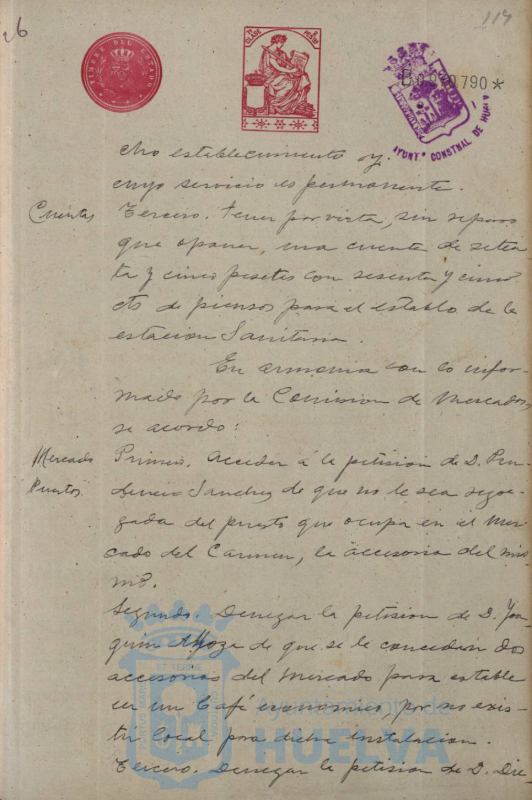 26
114
TIMBRE DEL ESTADO
B.0.790*
AYUNT.º CONSTNAL DE HUELVA
cho establecimiento y
cuyo servicio es permanente.
Cuentas
Tercero. Tener por vista, sin reparo
que oponer, una cuenta de seten
ta y cinco pesetas con sesenta y cinco
cts de piensos para el establo de la
estacion Sanitaria.
En armonia con lo infor-
mado por la Comision de Mercados
se acordó:
Mercado
Puestos
Primero. Acceder á la petision de D. Pru
dencio Sanchez de que no le sea segre-
gada del puesto que ocupa en el Mer
cado del Carmen, la accesoria del mis
mo.
Segundo. Denegar la petision de D. Joa
quin de que se le concedan dos
accesorias del Mercado para estable
cer un Café economico, por no exis-
tir local para dicha instalacion.
Tercero. Denegar la petision de D. Die-
Ayuntamiento de
HUELVA